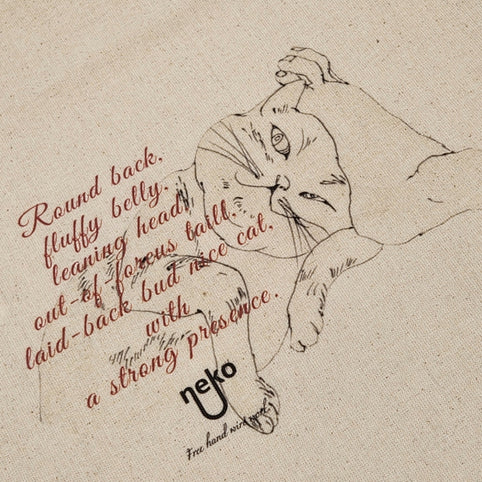 Round back.
fluffy belly.
leaning head.
out-of-forcus taill.
laid-back bud nice cat.
with
a strong presence.
neko
Free hand wire work